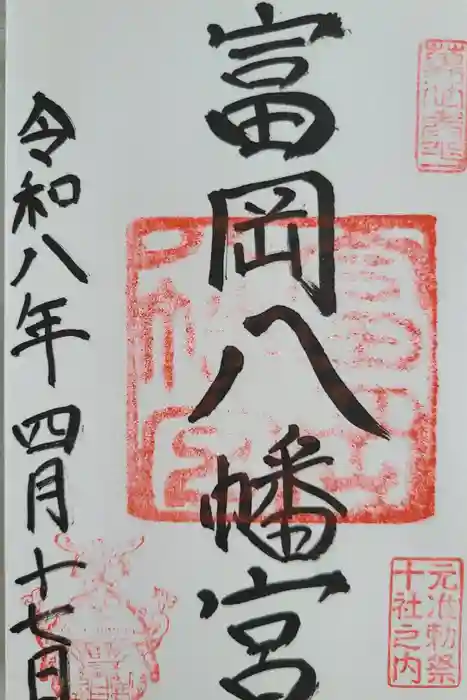 富岡八幡宮
元准勅祭
十社之内
令和八年四月十七日